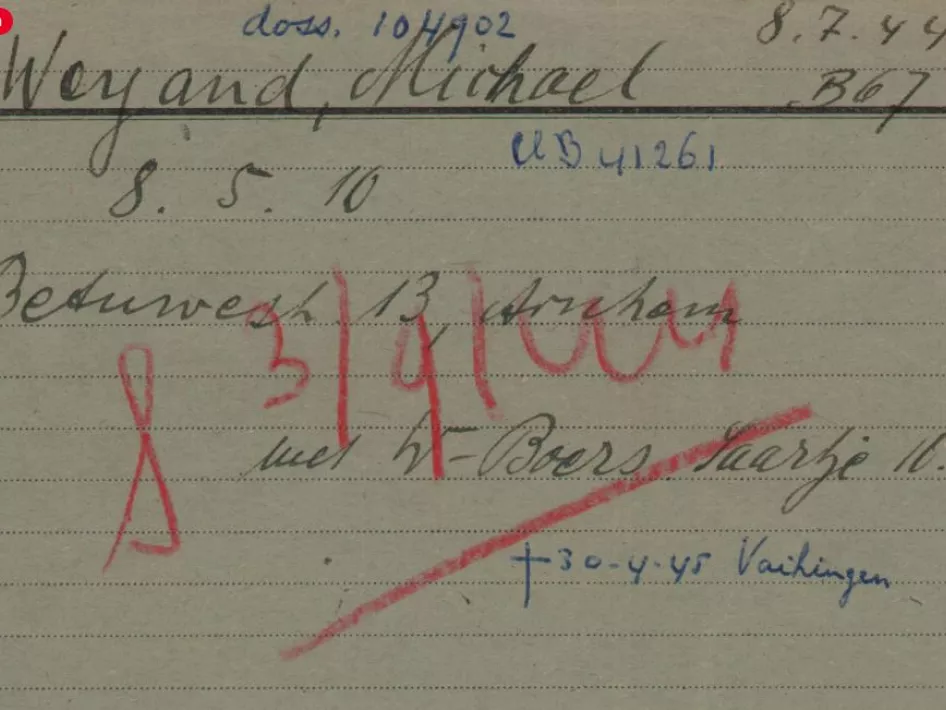 doss. 104902
8.7.44
Weyand, Michael
B67
UB 41261
8. 5. 10
Betuwestr. 13, Arnhem
3/9/44
met W-Boers Saartje 10.
†30-4-45 Vaihingen